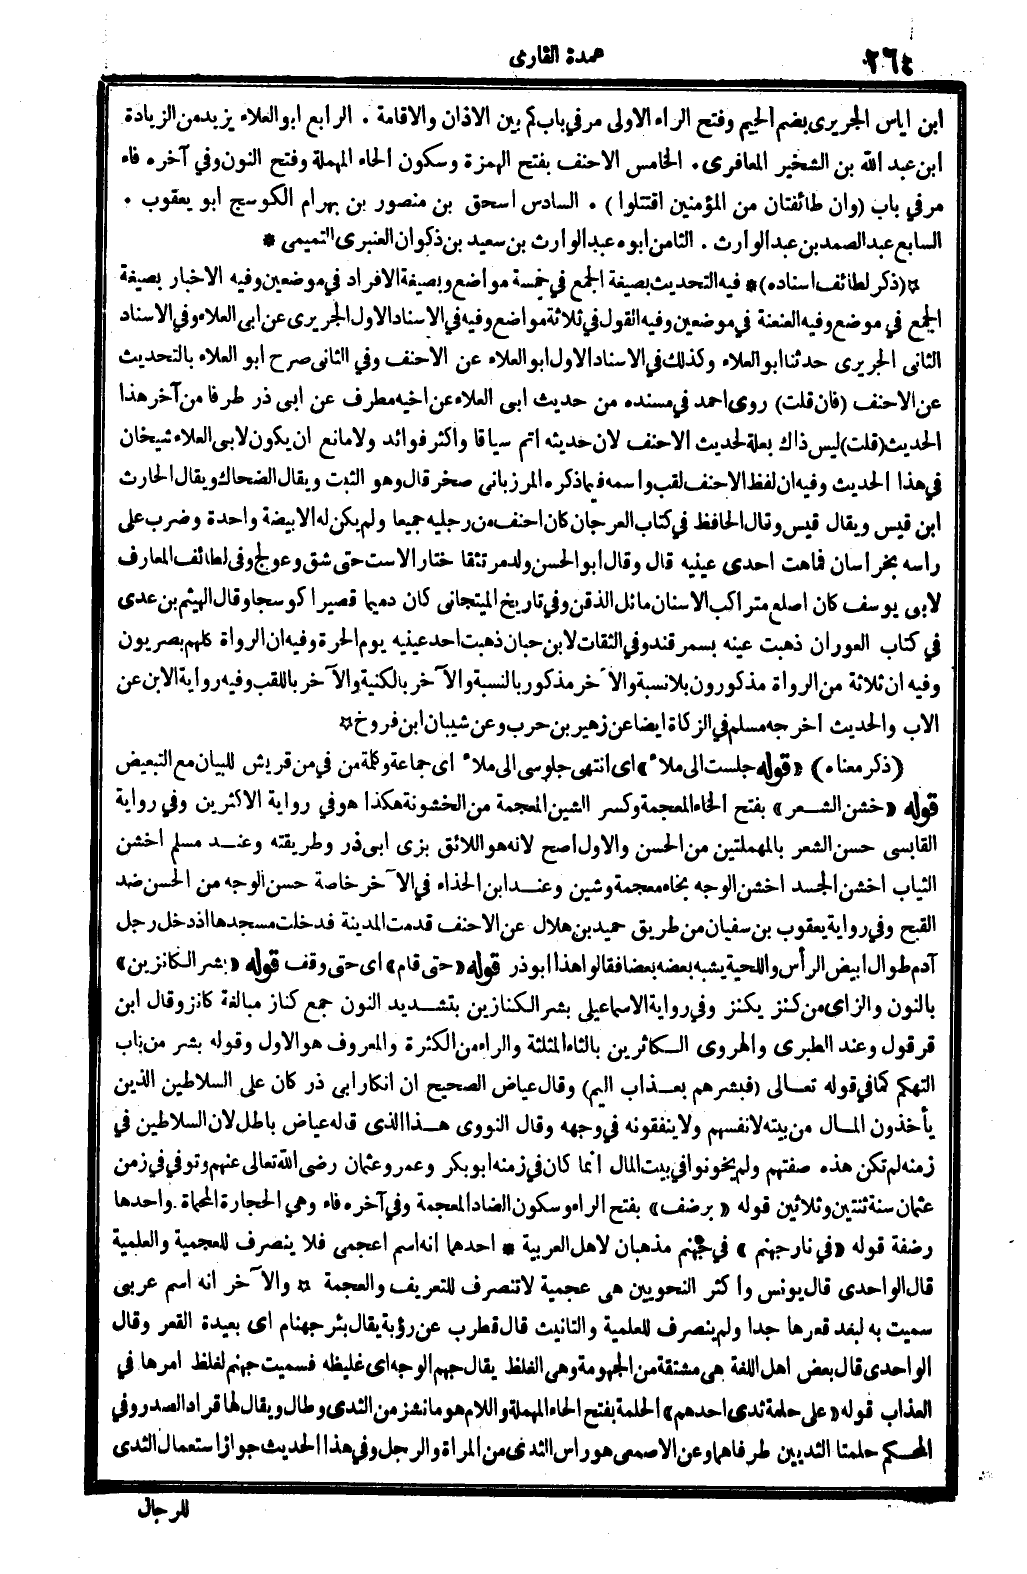 عمدة القارى
٢٦٤
ابن اياس الجريرى بضم الجيم وفتح الراء الاولى مر في باب كم بين الاذان والاقامة . الرابع ابو العلاء يزيد من الزيادة
ابن عبد الله بن الشخير المعافرى . الخامس الاحنف بفتح الهمزة وسكون الحاء المهملة وفتح النون وفي آخره فاء
مر في باب (وان طائفتان من المؤمنين اقتتلوا) . السادس اسحق بن منصور بن بهرام الكوسج ابو يعقوب .
السابع عبد الصمد بن عبد الوارث . الثامن ابوه عبد الوارث بن سعيد بن ذكوان العنبرى التميمى *
*(ذكر لطائف اسناده)* فيه التحديث بصيغة الجمع في خمسة مواضع وبصيغة الافراد في موضعين وفيه الاخبار بصيغة
الجمع في موضع وفيه العنعنة في موضعين وفيه القول في ثلاثة مواضع وفيه في الاسناد الاول الجريرى عن ابى العلاء وفي الاسناد
الثانى الجريرى حدثنا ابو العلاء وكذلك في الاسناد الاول ابو العلاء عن الاحنف وفي الثانى صرح ابو العلاء بالتحديث
عن الاحنف (فان قلت) روى احمد في مسنده من حديث ابى العلاء عن اخيه مطرف عن ابى ذر طرفا من آخر هذا
الحديث (قلت) ليس ذاك بعلة لحديث الاحنف لان حديثه اتم سياقا واكثر فوائد ولا مانع ان يكون لابى العلاء شيخان
في هذا الحديث وفيه ان لفظ الاحنف لقب واسمه فيما ذكره المرزبانى صخر قال وهو الثبت ويقال الضحاك ويقال الحارث
ابن قيس ويقال قيس وقال الحافظ في كتاب العرجان كان احنف من رجليه جميعا ولم يكن له الا بيضة واحدة وضرب على
راسه بخراسان فماهت احدى عينيه قال وقال ابو الحسن ولد مرتتقا ختار الاست حتى شق وعولج وفى لطائف المعارف
لابى يوسف كان اصلع متراكب الاسنان مائل الذقن وفي تاريخ الميتجانى كان دميما قصيرا كوسجا وقال الهيثم بن عدى
في كتاب العوران ذهبت عينه بسمرقند وفي الثقات لابن حبان ذهبت احد عينيه يوم الحرة وفيه ان الرواة كلهم بصريون
وفيه ان ثلاثة من الرواة مذكورون بلا نسبة والآخر مذكور بالنسبة والآخر بالكنية والآخر باللقب وفيه رواية الابن عن
الاب والحديث اخرجه مسلم في الزكاة ايضا عن زهير بن حرب وعن شيبان ابن فروخ*
(ذكر معناه) قوله «جلست الى ملأ» اى انتهى جلوسى الى ملأ اى جماعة وكلمة من في من قريش للبيان مع التبعيض
قوله «خشن الشعر» بفتح الخاء المعجمة وكسر الشين المعجمة من الخشونة هكذا هو في رواية الاكثرين وفي رواية
القابسى حسن الشعر بالمهملتين من الحسن والاول اصح لانه هو اللائق بزى ابى ذر وطريقته وعند مسلم اخشن
الثياب اخشن الجسد اخشن الوجه بخاء معجمة وشين وعند ابن الحذاء في الآخر خاصة حسن الوجه من الحسن ضد
القبح وفى رواية يعقوب بن سفيان من طريق حميد بن هلال عن الاحنف قدمت المدينة فدخلت مسجدها اذ دخل رجل
آدم طوال ابيض الرأس واللحية يشبه بعضه بعضا فقالوا هذا ابو ذر قوله «حتى قام» اى حتى وقف قوله «بشر الكانزين»
بالنون والزاى من كنز يكنز وفى رواية الاسماعيلى بشر الكنازين بتشديد النون جمع كناز مبالغة كانز وقال ابن
قرقول وعند الطبرى والهروى الكاثرين بالثاء المثلثة والراء من الكثرة والمعروف هو الاول وقوله بشر من باب
التهكم كما في قوله تعالى (فبشرهم بعذاب اليم) وقال عياض الصحيح ان انكار ابى ذر كان على السلاطين الذين
يأخذون المال من بيته لانفسهم ولا ينفقونه في وجهه وقال النووى هذا الذى قاله عياض باطل لان السلاطين في
زمنه لم تكن هذه صفتهم ولم يخونوا في بيت المال انما كان في زمنه ابو بكر وعمر وعثمان رضى الله تعالى عنهم وتوفي في زمن
عثمان سنة ثنتين وثلاثين قوله «برضف» بفتح الراء وسكون الضاد المعجمة وفي آخره فاء وهي الحجارة المحماة واحدها
رضفة قوله «في نار جهنم» في جهنم مذهبان لاهل العربية * احدهما انه اسم اعجمى فلا ينصرف للعجمية والعلمية
قال الواحدى قال يونس واكثر النحويين هى عجمية لا تنصرف للتعريف والعجمة * والآخر انه اسم عربى
سميت به لبعد قعرها جدا ولم ينصرف للعلمية والتانيث قال قطرب عن رؤبة يقال بئر جهنام اى بعيدة القعر وقال
الواحدى قال بعض اهل اللغة هى مشتقة من الجهومة وهى الغلظ يقال جهم الوجه اى غليظه فسميت جهنم لغلظ امرها في
العذاب قوله «على حلمة ثدى احدهم» الحلمة بفتح الحاء المهملة واللام هو ما نشز من الثدى وطال ويقال لها قراد الصدر وفي
المحكم حلمتا الثديين طرفاهما وعن الاصمعى هو راس الثدى من المراة والرجل وفى هذا الحديث جواز استعمال الثدى
للرجال